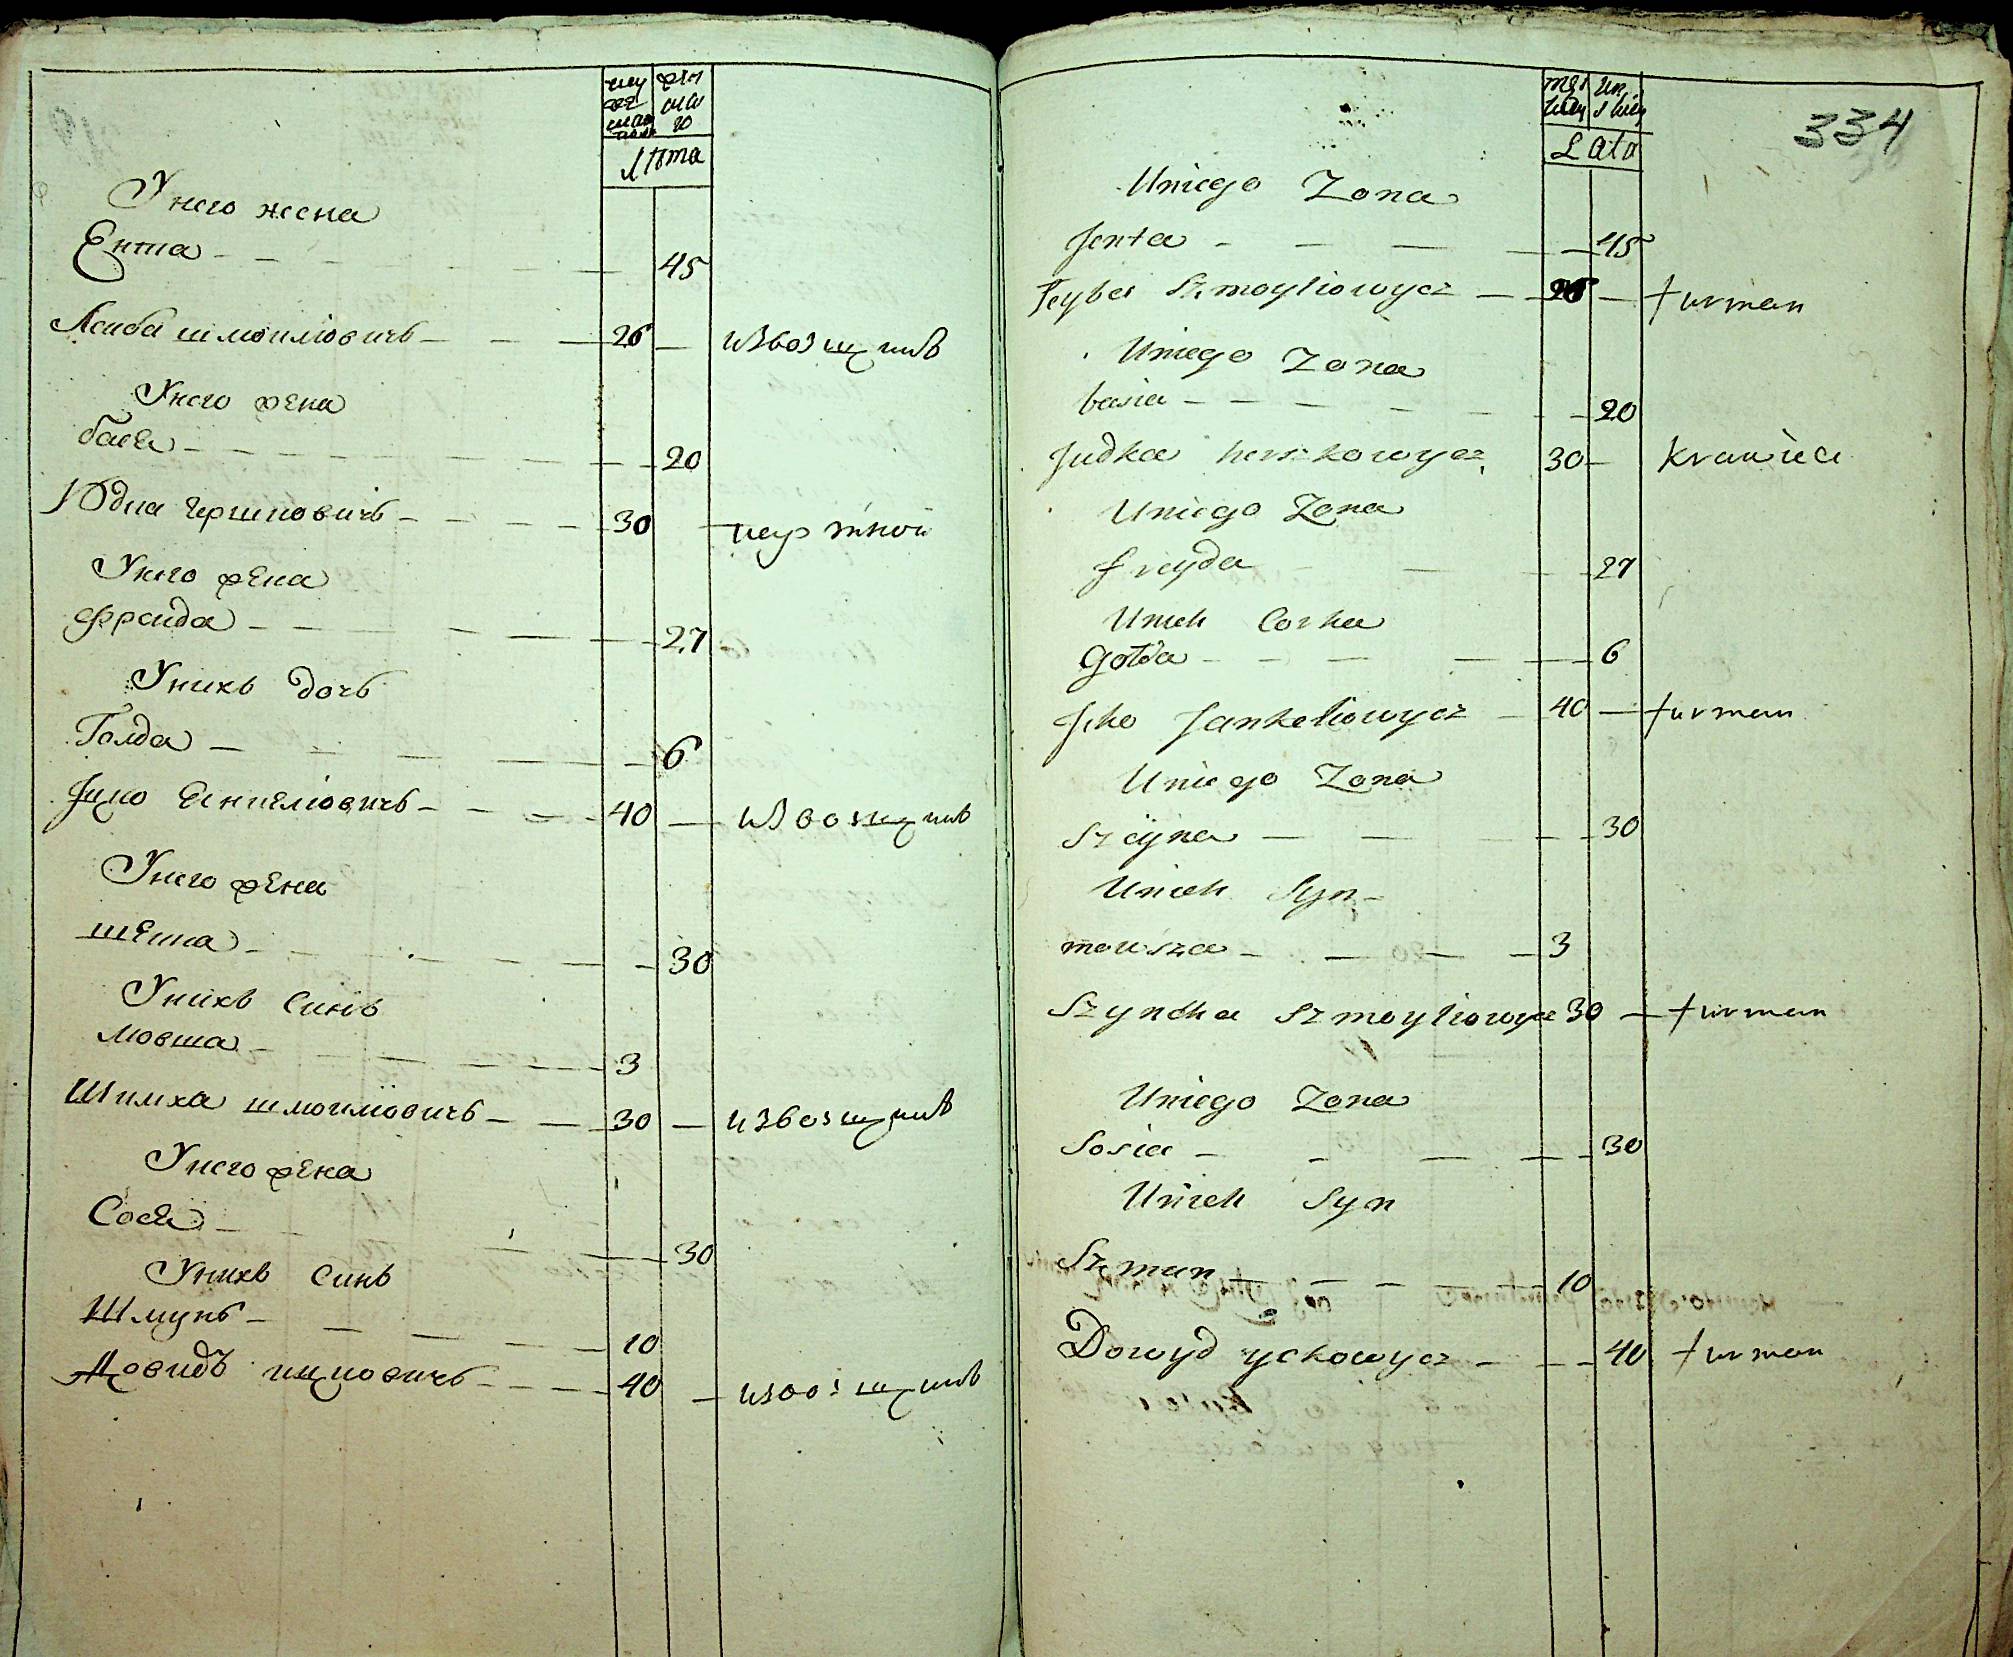 Лѣта
У него жена
Ента - 45
Лейба шмоиліовичъ - 26 - извозщикъ
У него жена
бася - 20
Юдка гершковичъ - 30
У него жена
Фреида - 27
У нихъ дочь
Голда - 6
Ицко Енкеліовичъ - 40 - извозщикъ
У него жена
шеина - 30
У нихъ синъ
Мовша - 3
Шимха шмоиліовичъ - 30 - извозщикъ
У него жена
Сося - 30
У нихъ синъ
Шмунъ - 10
Довидъ ицковичъ - 40 - извозщикъ
334
Lata
Uniego Zona
Jenta - 45
Leyba Szmoyliowycz - 26 - furman
Uniego Zona
basia - 20
Judka herszkowycz 30 - krawiec
Uniego Zona
freyda - 27
Unich Corka
Golda - 6
Jcko Jankeliowycz - 40 - furman
Uniego Zona
Szeyna - 30
Unich Syn
mowsza - 3
Szymcha Szmoyliowycz 30 - furman
Uniego Zona
Sosia - 30
Unich Syn
Szmun - 10
Dowyd yckowycz - 40 furman